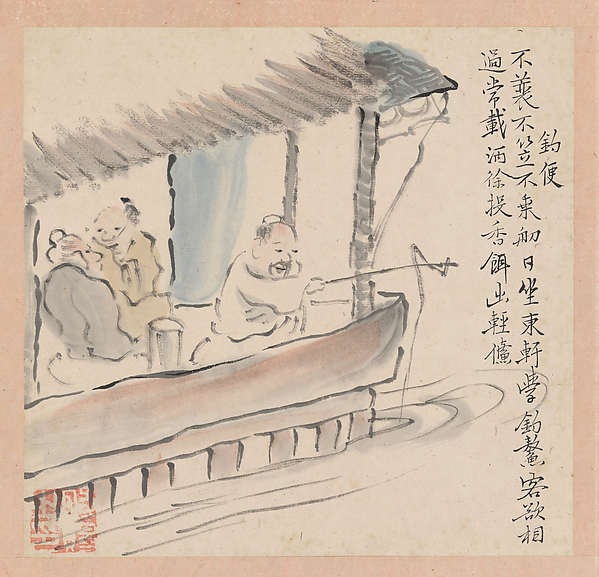 釣便
不蓑不笠不乘舠日坐東軒學釣鰲客欲相
過常載酒徐投香餌出輕儵